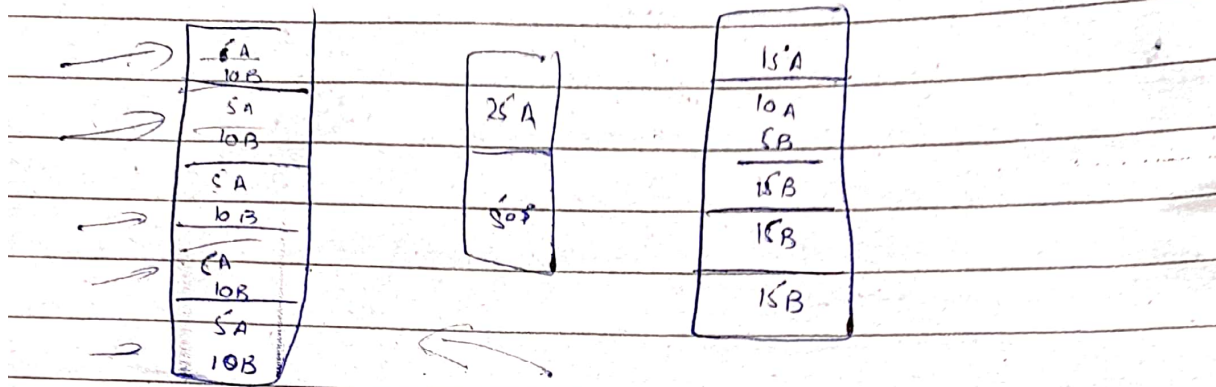 5A
10B
5A
10B
5A
10B
5A
10B
5A
10B
25A
15A
10A
5B
15B
15B
15B